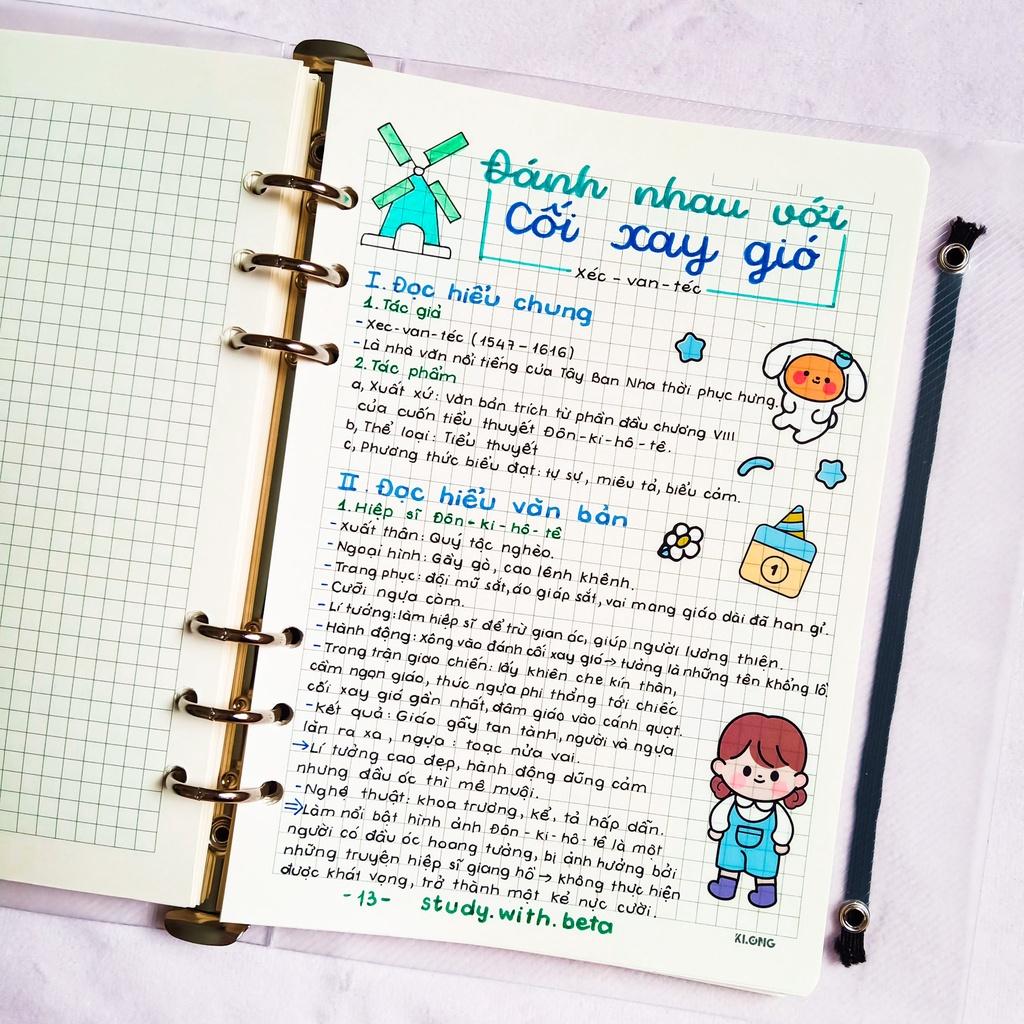 Đánh nhau với
Cối xay gió
Xéc - van - téc
I. Đọc hiểu chung
1. Tác giả
- Xec-van-téc (1547 - 1616)
- Là nhà văn nổi tiếng của Tây Ban Nha thời phục hưng.
2. Tác phẩm
a, Xuất xứ: văn bản trích từ phần đầu chương VIII
của cuốn tiểu thuyết Đôn-ki-hô-tê.
b, Thể loại: Tiểu thuyết
c, Phương thức biểu đạt: tự sự, miêu tả, biểu cảm.
II. Đọc hiểu văn bản
1. Hiệp sĩ Đôn-ki-hô-tê
- Xuất thân: Quý tộc nghèo.
- Ngoại hình: Gầy gò, cao lênh khênh.
- Trang phục: đội mũ sắt, áo giáp sắt, vai mang giáo dài đã han gỉ.
- Cưỡi ngựa còm.
- Lí tưởng: làm hiệp sĩ để trừ gian ác, giúp người lương thiện.
- Hành động: xông vào đánh cối xay gió → tưởng là những tên khổng lồ.
- Trong trận giao chiến: lấy khiên che kín thân,
cầm ngọn giáo, thúc ngựa phi thẳng tới chiếc
cối xay gió gần nhất, đâm giáo vào cánh quạt.
- Kết quả: Giáo gãy tan tành, người và ngựa
lăn ra xa, ngựa: toạc nửa vai.
→ Lí tưởng cao đẹp, hành động dũng cảm
nhưng đầu óc thì mê muội.
- Nghệ thuật: khoa trương, kể, tả hấp dẫn.
⇒ Làm nổi bật hình ảnh Đôn-ki-hô-tê là một
người có đầu óc hoang tưởng, bị ảnh hưởng bởi
những truyện hiệp sĩ giang hồ → không thực hiện
được khát vọng, trở thành một kẻ nực cười.
1
-13- study.with.beta
KI.ONG